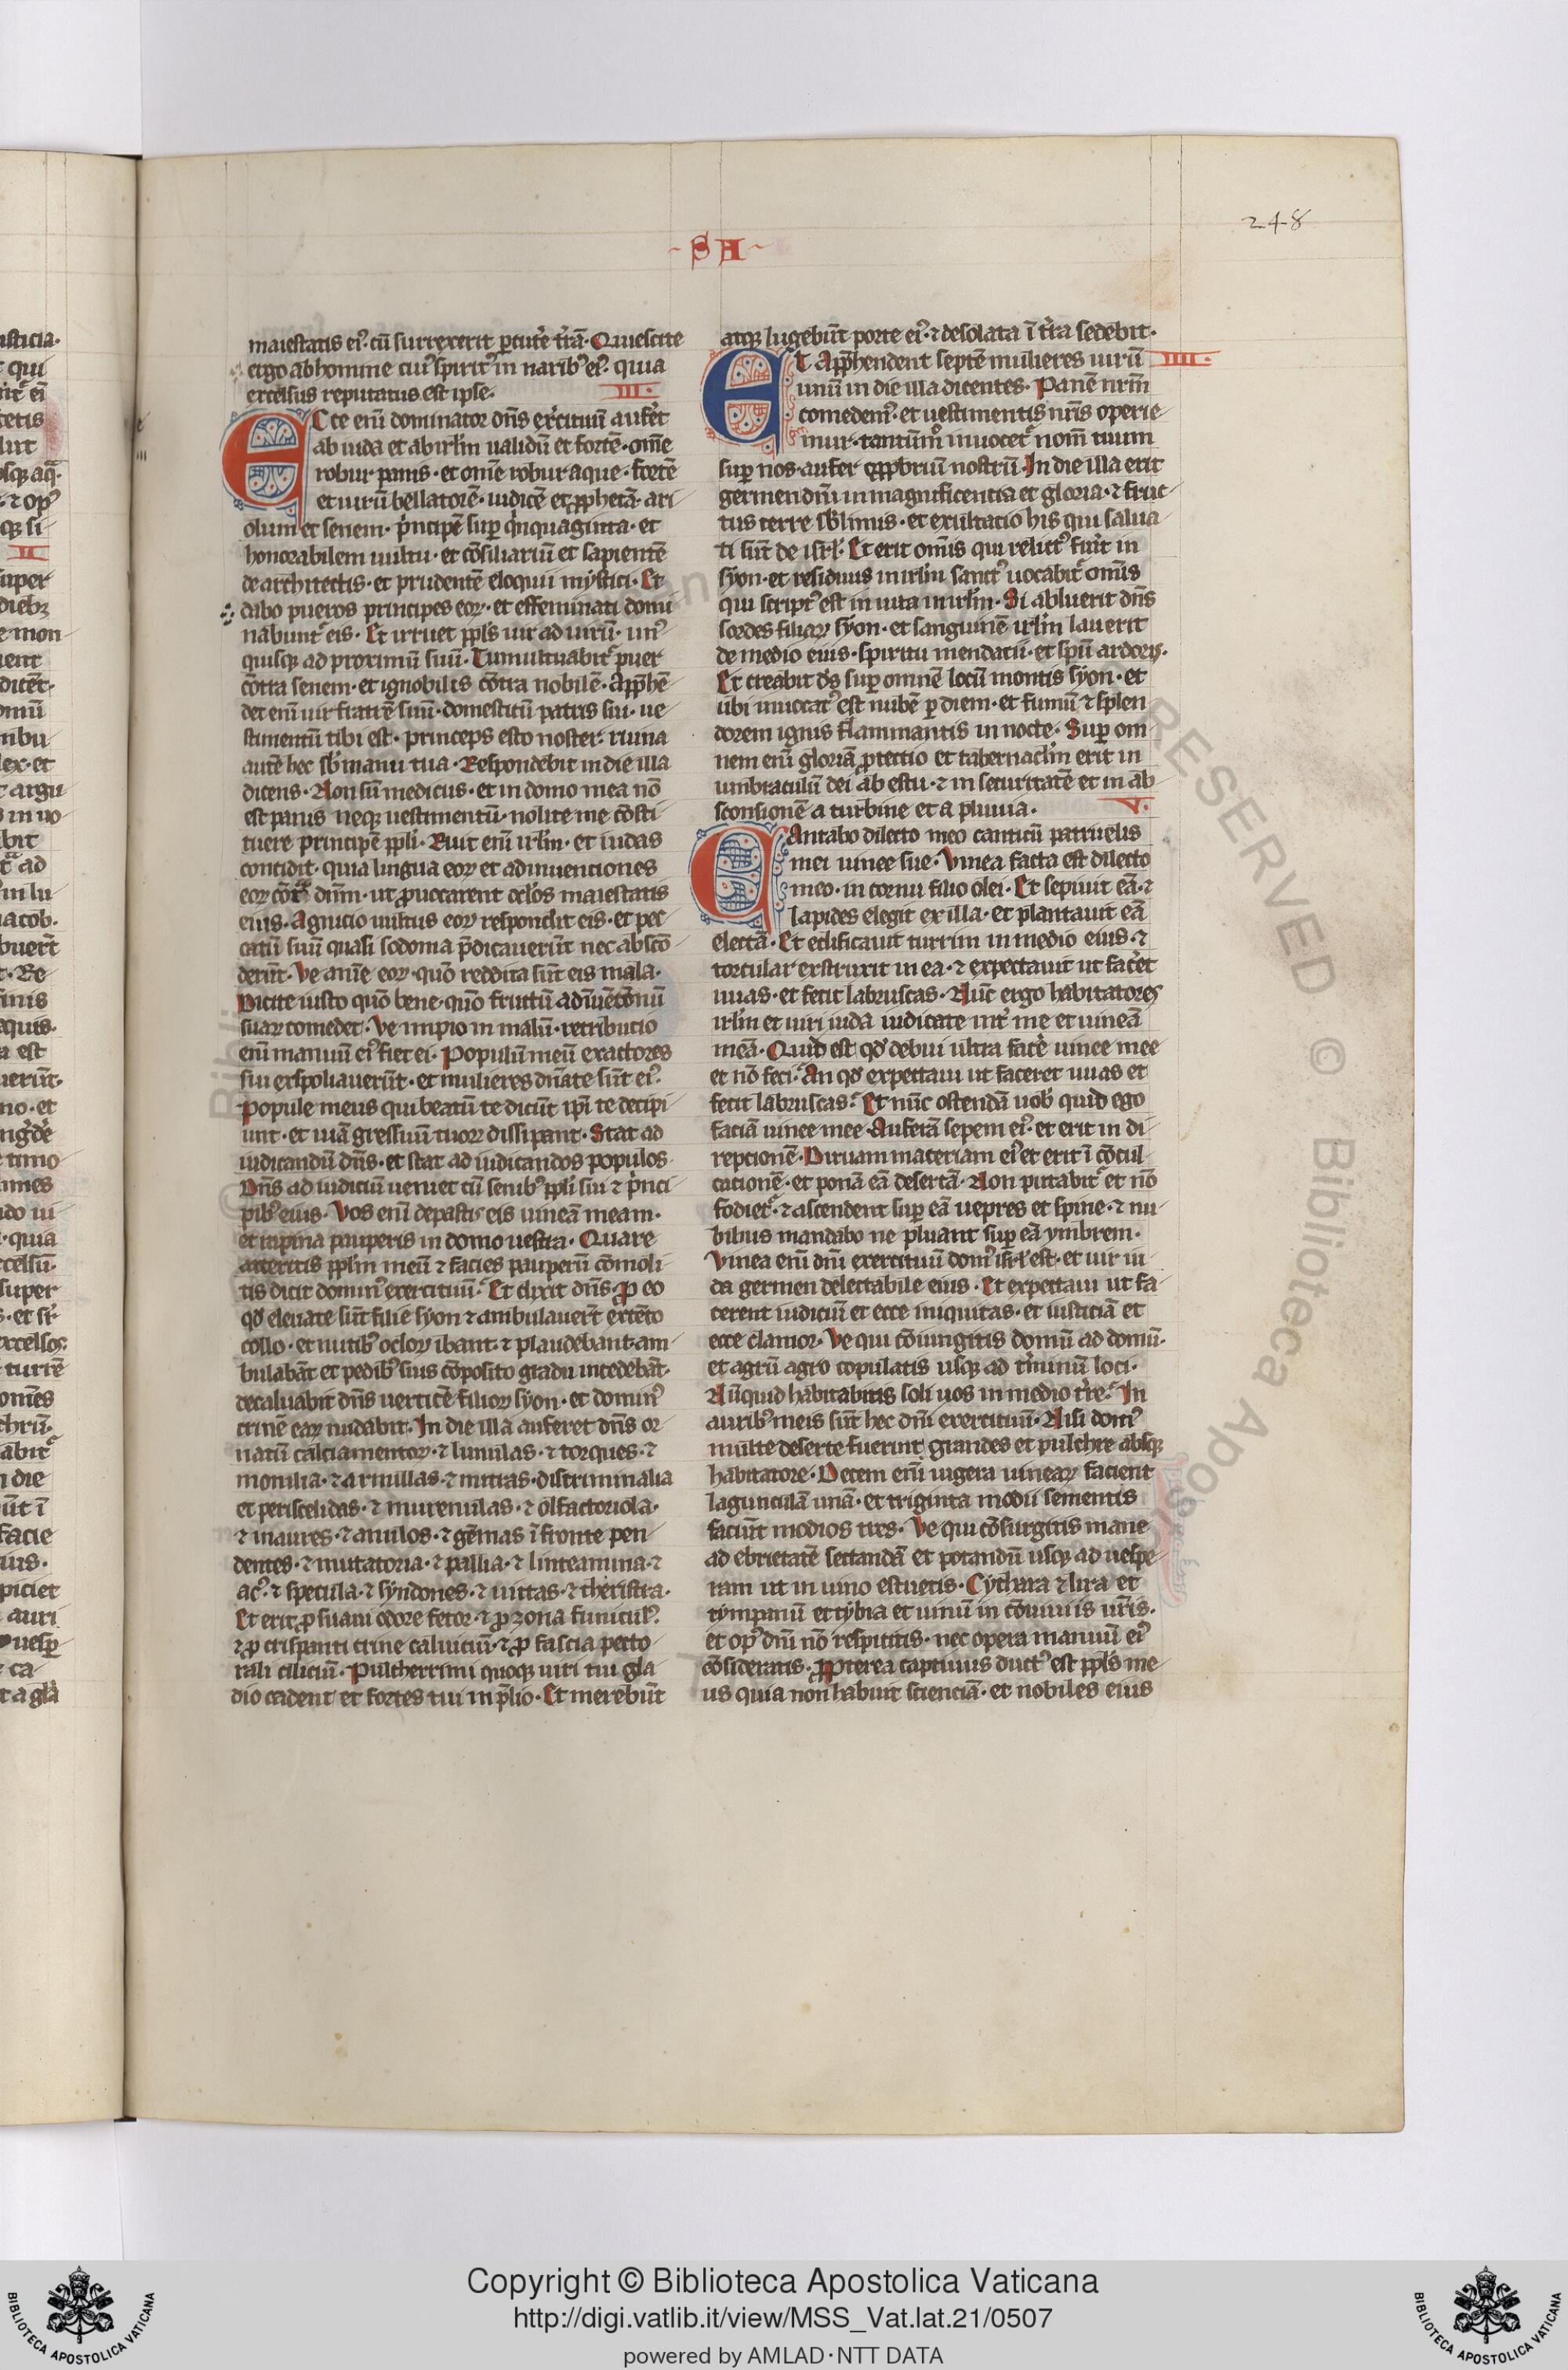 248
SA
maiestatis ei᷒. cū surrexerit ꝑcutẻ tr̄ā. Quiescite
ergo ab homine cui᷒ spirit᷒ in narib᷒ ei᷒. quia
excelsus reputatus est ipse. III.
Ecce enī dominator dn̄s exercituū aufert
ab iuda et ab irl̄m ualidū et fortē. om̄e
robur panis. et om̄e robur aque. fortē
et uirū bellatorē. iudicē et ꝓphetā. ari
olum et senem. pͥncipē suꝑ qͥnquaginta. et
honorabilem uultu. et cōsiliariū et sapientē
de architectis. et prudentē eloquii mystici. Et
dabo pueros principes eoꝝ. et effeminati domi
nabunt᷑ eis. Et irruet ppl̄s uir ad uirū. un᷒
quisqꝫ ad proximū suū. Tumultuabit᷑ puer
cōtra senem. et ignobilis cōtra nobilē. Appͤhē
det enī uir fratrē suū. domesticū patris sui. ue
stimentū tibi est. princeps esto noster. ruina
autē hec sb̄ manu tua. Respondebit in die illa
dicens. Non sū medicus. et in domo mea nō
est panis neqꝫ uestimentū. nolite me cōsti
tuere principē ppl̄i. Ruit enī irl̄m. et iudas
concidit. quia lingua eoꝝ et adinuentiones
eoꝝ cōtͣ dn̄m. ut ꝓuocarent ocl̄os maiestatis
eius. Agnicio uultus eoꝝ respondit eis. et pec
catū suū quasi sodoma p̄dicauerūt nec absco
derūt. Ve anīe eoꝝ. quō reddita sūt eis mala.
Dicite iusto quō bene. quō fructū adīuētōnū
suaꝝ comedet. Ve impio in malū. retributio
enī manuū ei᷒ fiet ei. Populū meū exactores
sui exspoliauerūt. et mulieres dn̄ate sūt ei᷒.
Popule meus qui beatū te dicūt ip̄i te decipi
unt. et uiā gressuū tuoꝝ dissipant. Stat ad
iudicandū dn̄s. et stat ad iudicandos populos.
Dn̄s ad iudiciū ueniet cū senib᷒ ppl̄i sui ⁊ pͥnci
pib᷒ eius. Vos enī depasti eis uineā meam.
et rapina pauperis in domo uestra. Quare
atteritis ppl̄m meū ⁊ facies pauperū cōmoli
tis dicit domin᷒ exercituū. Et dixit dn̄s. Ꝓ eo
qd̓ eleuate sūt filie syon ⁊ ambulauert̄ extēto
collo. et nutib᷒ ocloꝝ ibant. ⁊ plaudebant. am
bulabāt et pedib᷒ suis cōposito gradu incedebāt.
decaluabit dn̄s uerticē filiaꝝ syon. et domin᷒
crinē eaꝝ nudabit. In die illa auferet dn̄s or
natū calciamentoꝝ. ⁊ lunulas. ⁊ torques. ⁊
monilia. ⁊ armillas. ⁊ mitras. discriminalia
et periscelidas. ⁊ murenulas. ⁊ olfactoriola.
⁊ inaures. ⁊ anulos. ⁊ gēmas ī fronte pen
dentes. ⁊ mutatoria. ⁊ pallia. ⁊ linteamina. ⁊
ac᷒. ⁊ specula. ⁊ syndones. ⁊ uittas. ⁊ theristra.
Et erit ꝓ suaui odore fetor. ⁊ ꝓ zona funicul᷒.
⁊ ꝓ crispanti crine caluiciū. ⁊ ꝓ fascia pecto
rali ciliciū. Pulcherrimi quoqꝫ uiri tui gla
dio cadent et fortes tui in p̄lio. Et merebūt
atqꝫ lugebūt porte ei᷒. ⁊ desolata ī tr̄a sedebit.
Et appͤhendent septē mulieres uirū IIII.
unū in die illa dicentes. Panē nrm̄
comedem᷒. et uestimentis nr̄is operie
mur. tantūmͦ inuocet᷑ nom̄ tuum
suꝑ nos. aufer oppͦbriū nostrū. In die illa erit
germen dn̄i in magnificentia et gloria. ⁊ fruc
tus terre sb̄limis. et exultatio his qui salua
ti sūt de isrl̄. Et erit om̄is qui relict᷒ fuẻit in
syon. et residuus in irl̄m sanct᷒ uocabit᷑ om̄is
qui script᷒ est in uita in irl̄m. Si abluerit dn̄s
sordes filiaꝝ syon. et sanguinē irl̄m lauerit
de medio eius. spiritu mendacii. et spū ardoris.
Et creabit dn̄s suꝑ omnē locū montis syon. et
ubi inuocat᷒ est nubē ꝑ diem. et fumū ⁊ splen
dorem ignis flammantis in nocte. Suꝑ om
nem enī gloriā ꝓtectio et tabernacl̄m erit in
umbraculū dei ab estu. ⁊ in securitatē et in ab
sconsionē a turbine et a pluuia. V.
Cantabo dilecto meo canticū patruelis
mei uinee sue. Vinea facta est dilecto
meo. in cornu filio olei. Et sepiuit eā. ⁊
lapides elegit ex illa. et plantauit eā
electā. Et edificauit turrim in medio eius. ⁊
torcular exstruxit in ea. ⁊ expectauit ut facet̉
uuas. et fecit labruscas. Nūc ergo habitatores
irl̄m et uiri iuda iudicate int̉ me et uineā
meā. Quid est qd̓ debui ultra facẻ uinee mee
et nō feci. An qd̓ expectaui ut faceret uuas et
fecit labruscas. Et nūc ostendā uob̓ quid ego
faciā uinee mee. Auferā sepem ei᷒. et erit in di
reptionē. Diruam materiam ei᷒ et erit ī cōcul
cationē. et ponā eā desertā. Non putabit᷑ et nō
fodiet᷑. ⁊ ascendent suꝑ eā uepres et spine. ⁊ nu
bibus mandabo ne pluant suꝑ eā ymbrem.
Vinea enī dn̄i exercituū dom᷒ isrl̄ est. et uir iu
da germen delectabile eius. Et expectaui ut fa
cerent iudiciū et ecce iniquitas. et iusticiā et
ecce clamor. Ve qui cōiungitis domū ad domū.
et agrū agro copulatis usqꝫ ad tm̉inū loci.
Nūquid habitabitis soli uos in medio tr̉re. In
aurib᷒ meis sūt hec dn̄i exercituū. Nisi dom᷒
multe deserte fuerint grandes et pulchre absqꝫ
habitatore. Decem enī iugera uineaꝝ facient
lagunculā unā. et triginta modii sementis
faciūt modios tres. Ve qui cōsurgitis mane
ad ebrietatē sectandā et potandū usqꝫ ad uespe
ram ut in uino estuetis. Cythara ⁊ lira et
tympanū et tybia et uinū in cōuiuiis ur̄is.
et op᷒ dn̄i nō respicitis. nec opera manuū ei᷒
cōsideratis. Ꝓpterea captiuus duct᷒ est ppl̄s me
us quia non habuit scienciā. et nobiles eius
Copyright © Biblioteca Apostolica Vaticana
http://digi.vatlib.it/view/MSS_Vat.lat.21/0507
powered by AMLAD·NTT DATA
BIBLIOTECA APOSTOLICA VATICANA
BIBLIOTECA APOSTOLICA VATICANA